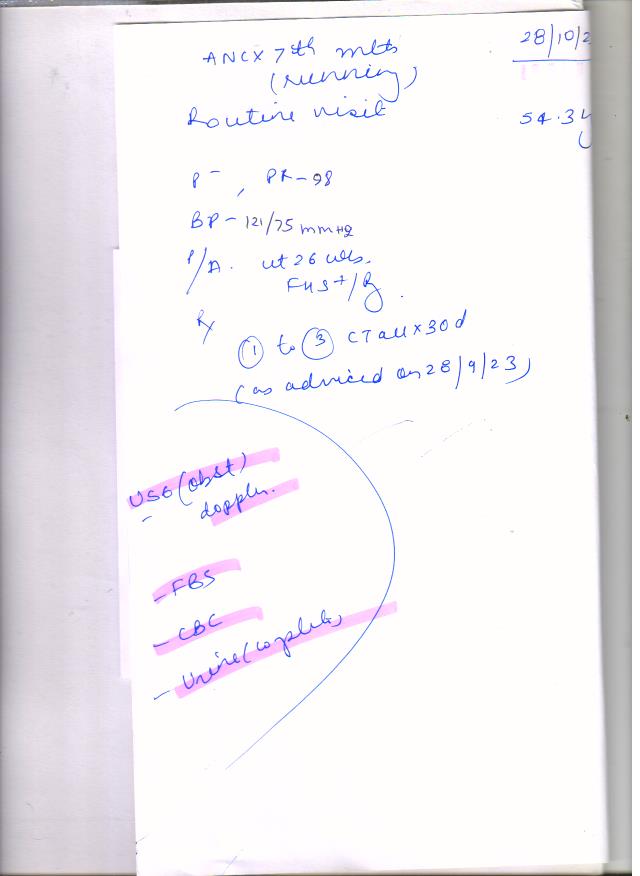 28/10/2
ANCX 7th mts
(running)
Routine visit
54.3
P - , PR - 98
BP - 121/75 mmHg
P/A. ut 26 wks.
FHS+/R.
Rx
① to ③ CT all x 30d
(as adviced on 28/9/23)
USG (obst)
doppler.
- FBS
- CBC
- Urine (complete)